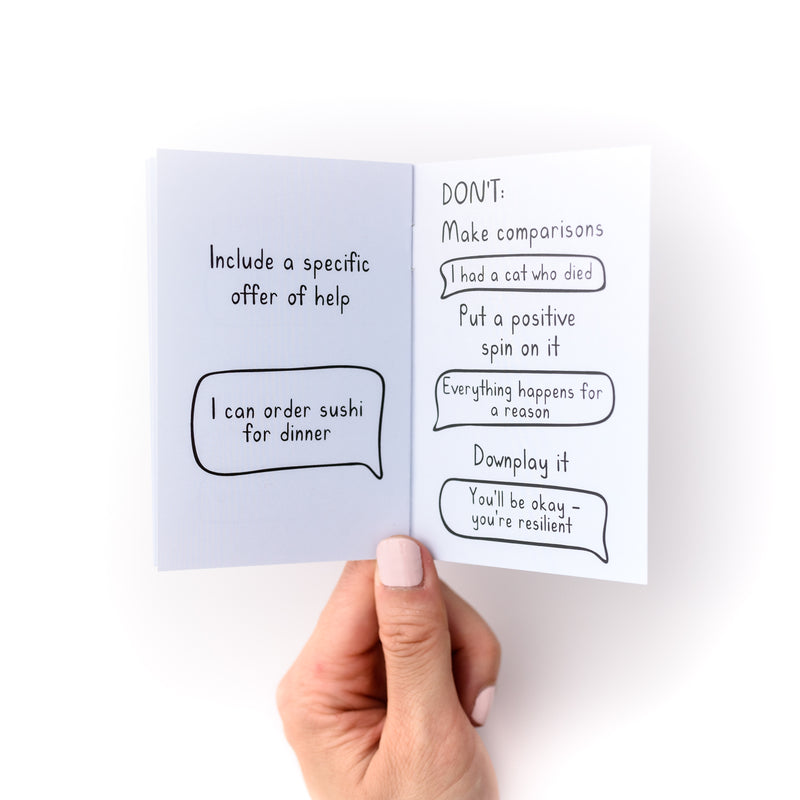 Include a specific
offer of help
I can order sushi
for dinner
DON'T:
Make comparisons
I had a cat who died
Put a positive
spin on it
Everything happens for
a reason
Downplay it
You'll be okay –
you're resilient